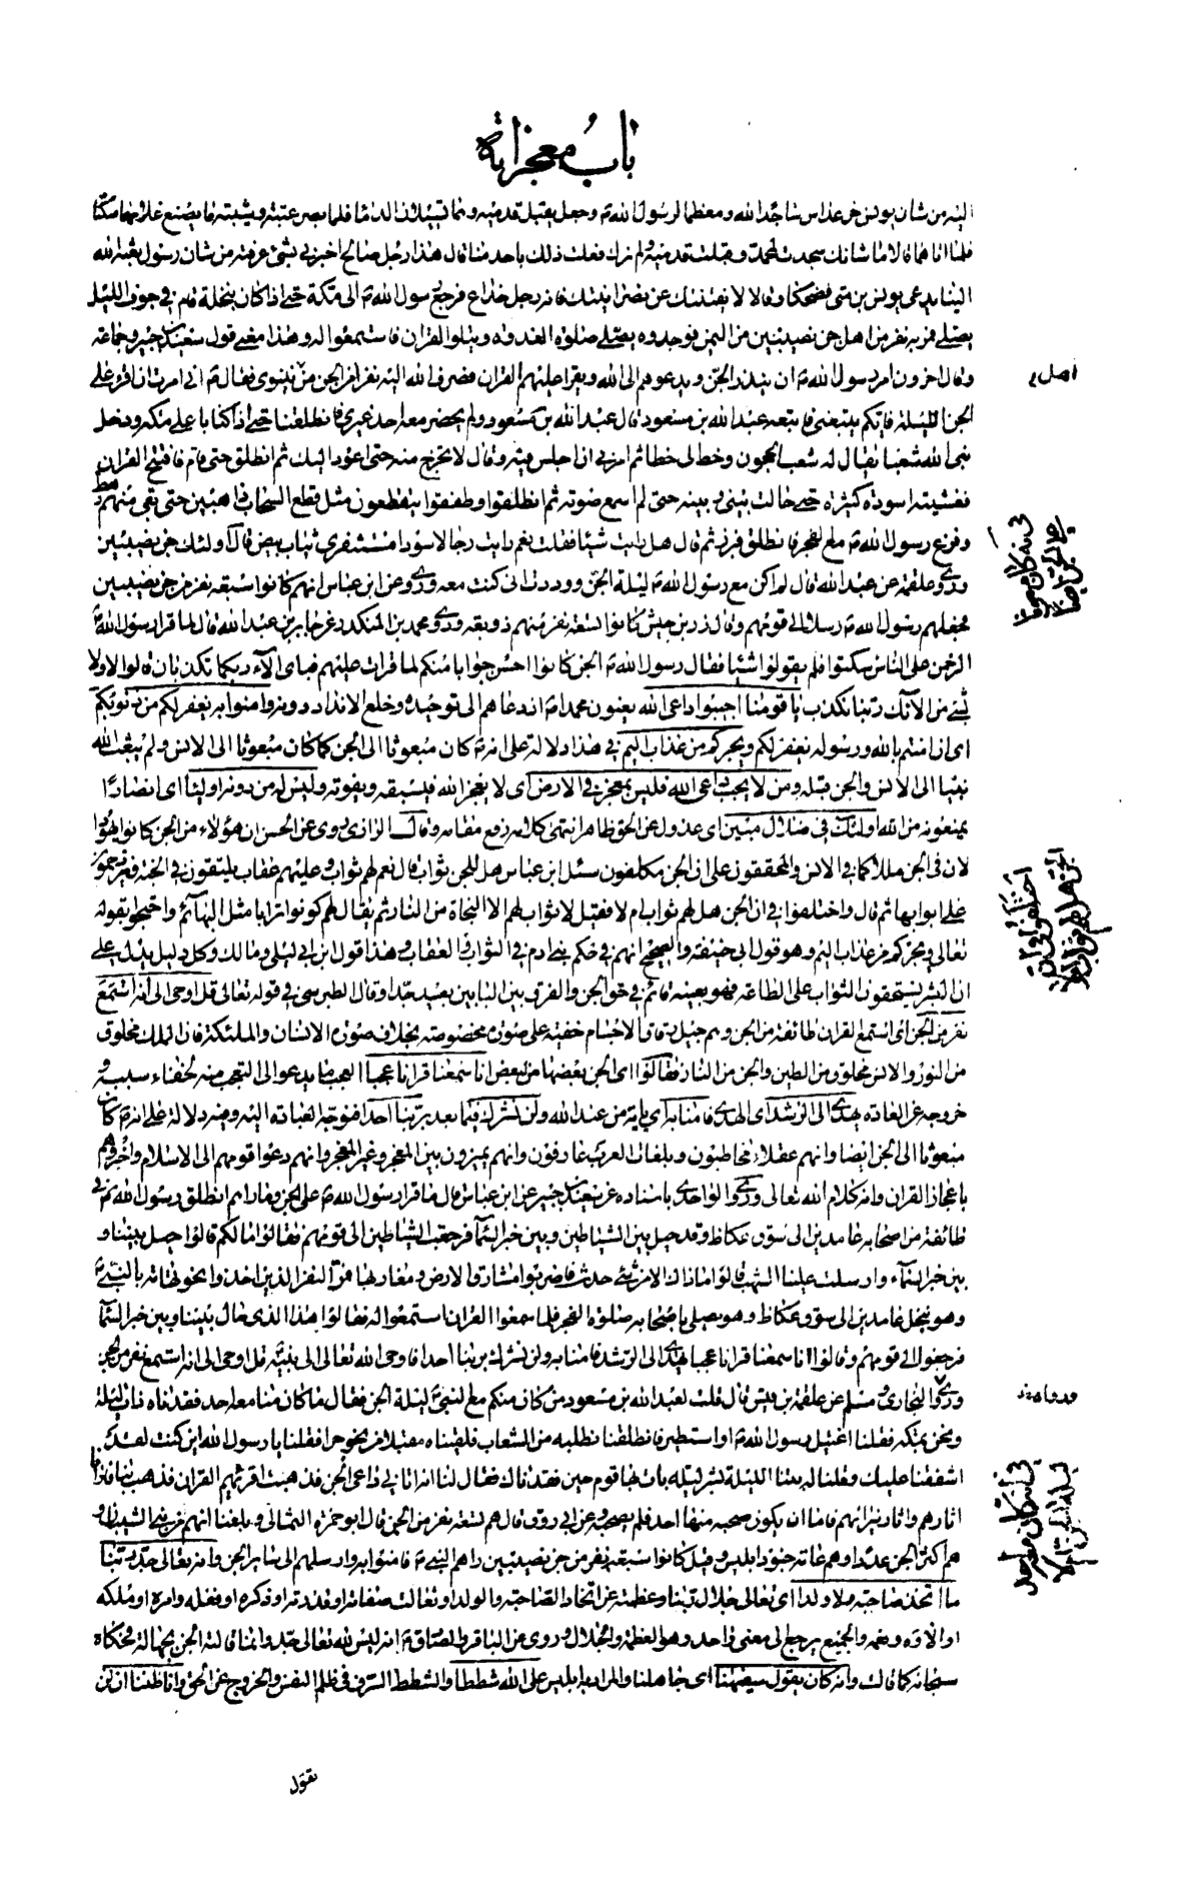 باب معجزاته
اليه من شان يونس خر عداس ساجدا لله ومعظما لرسول الله ص وجعل يقبل قدميه وهما تسيلان الدما فلما بصر عتبة وشيبة ما يصنع غلامهما سكتا
فلما اتاهما قالا ما شانك سجدت لمحمد وقبلت قدميه ولم نرك فعلت ذلك باحد منا قال هذا رجل صالح اخبرني بشئ عرفته من شان رسول بعثه الله
الينا يدعى يونس بن متى فضحكا وقالا لا يفتننك عن نصرانيتك فانه رجل خداع فرجع رسول الله ص الى مكة حتى اذا كان بنخلة قام في جوف الليل
يصلي فمر به نفر من اهل جن نصيبين من اليمن فوجدوه يصلي صلوة الغداة ويتلو القران فاستمعوا له وهذا معنى قول سعيد بن جبير وجماعة
وقال اخرون امر رسول الله ص ان ينذر الجن ويدعوهم الى الله ويقرا عليهم القران فصرف الله اليه نفرا من الجن من نينوى فقال ص اني امرت ان اقرء على
الجن الليلة فايكم يتبعني فاتبعه عبد الله بن مسعود قال عبد الله بن مسعود ولم يحضر معه احد غيري فانطلقنا حتى اذا كنا باعلى مكة ودخل
نبي الله شعبا يقال له شعب الحجون وخط لي خطا ثم امرني ان اجلس فيه وقال لا تخرج منه حتى اعود اليك ثم انطلق حتى قام فافتتح القران
فغشيته اسودة كثيرة حتى حالت بيني وبينه حتى لم اسمع صوته ثم انطلقوا وطفقوا يتقطعون مثل قطع السحاب ذاهبين حتى بقي منهم رهط
وفرغ رسول الله ص مع الفجر فانطلق فبرز ثم قال هل رايت شيئا فقلت نعم رايت رجالا سودا مستثفري ثياب بيض قال اولئك جن نصيبين
وروى علقمة عن عبد الله قال لم اكن مع رسول الله ص ليلة الجن ووددت اني كنت معه وروى عن ابن عباس انهم كانوا سبعة نفر من جن نصيبين
فجعلهم رسول الله ص رسلا الى قومهم وقال زر بن حبيش كانوا تسعة نفر منهم زوبعة وروى محمد بن المنكدر عن جابر بن عبد الله قال لما قرا رسول الله ص
الرحمن على الناس سكتوا فلم يقولوا شيئا فقال رسول الله ص الجن كانوا احسن جوابا منكم لما قرات عليهم فباي الاء ربكما تكذبان قالوا لا ولا
بشئ من آلائك ربنا نكذب يا قومنا اجيبوا داعي الله يعنون محمدا ص اذ دعاهم الى توحيده وخلع الانداد دونه وامنوا به يغفر لكم من ذنوبكم
اي ان امنتم بالله ورسوله يغفر لكم ويجركم من عذاب اليم في هذا دلالة على انه ص كان مبعوثا الى الجن كما كان مبعوثا الى الانس ولم يبعث الله
نبيا الى الانس والجن قبله ومن لا يجب داعي الله فليس بمعجز في الارض اي لا يعجز الله فيسبقه ويفوته وليس له من دونه اولياء اي انصارا
يمنعونه من الله اولئك في ضلال مبين اي عدول عن الحق ظاهر انتهى كلامه رفع مقامه وقال الرازي روى عن الحسن ان هؤلاء من الجن كانوا يهودا
لان في الجن مللا كما في الانس والمحققون على ان الجن مكلفون سئل ابن عباس هل للجن ثواب قال نعم لهم ثواب وعليهم عقاب يلتقون في الجنة ويزدحمون
على ابوابها ثم قال واختلفوا في ان الجن هل لهم ثواب ام لا فقيل لا ثواب لهم الا النجاة من النار ثم يقال لهم كونوا ترابا مثل البهائم واحتجوا بقوله
تعالى ويجركم من عذاب اليم وهو قول ابي حنيفة والصحيح انهم في حكم بني ادم في الثواب والعقاب وهذا قول ابن ابي ليلى ومالك وكل دليل يدل على
ان البشر يستحقون الثواب على الطاعة فهو بعينه قائم في حق الجن والفرق بين البابين بعيد جدا وقال الطبرسي في قوله تعالى قل اوحي الى انه استمع
نفر من الجن اي استمع القران طائفة من الجن وهم جيل رقاق الاجسام خفية على صورة مخصوصة بخلاف صورة الانسان والملئكة فان الملك مخلوق
من النور والانس مخلوق من الطين والجن من النار فقالوا اي الجن بعضها من بعض انا سمعنا قرانا عجبا العجب ما يدعو الى التعجب منه لخفاء سببه و
خروجه عن العادة يهدى الى الرشد اي الهدى فامنا به اي بانه من عند الله ولن نشرك فيما بعد بربنا احدا فنوجه العبادة اليه وفيه دلالة على انه ص كان
مبعوثا الى الجن ايضا وانهم عقلاء مخاطبون وبلغات العرب عارفون وانهم يميزون بين المعجز وغير المعجز وانهم دعوا قومهم الى الاسلام واخبروهم
باعجاز القران وانه كلام الله تعالى وروى الواحدي باسناده عن سعيد بن جبير عن ابن عباس قال ما قرا رسول الله ص على الجن وما راهم انطلق رسول الله ص في
طائفة من اصحابه عامدين الى سوق عكاظ وقد حيل بين الشياطين وبين خبر السماء فرجعت الشياطين الى قومهم فقالوا ما لكم قالوا حيل بيننا و
بين خبر السماء وارسلت علينا الشهب قالوا ما ذاك الا من شئ حدث فاضربوا مشارق الارض ومغاربها فمر النفر الذين اخذوا نحو تهامة بالنبي ص
وهو بنخل عامدين الى سوق عكاظ وهو يصلي باصحابه صلوة الفجر فلما سمعوا القران استمعوا له فقالوا هذا الذي حال بيننا وبين خبر السماء
فرجعوا الى قومهم وقالوا انا سمعنا قرانا عجبا يهدى الى الرشد فامنا به ولن نشرك بربنا احدا فاوحى الله تعالى الى نبيه ص قل اوحي الى انه استمع نفر من الجن
وروى البخاري ومسلم عن علقمة بن قيس قال قلت لعبد الله بن مسعود من كان منكم مع النبي ص ليلة الجن فقال ما كان منا معه احد فقدناه ذات ليلة
ونحن بمكة فقلنا اغتيل رسول الله ص او استطير فانطلقنا نطلبه من الشعاب فلقيناه مقبلا من نحو حرا فقلنا يا رسول الله اين كنت لقد
اشفقنا عليك وقلنا له بتنا الليلة بشر ليلة بات بها قوم حين فقدناك فقال لنا انه اتاني داعي الجن فذهبت اقرئهم القران فذهب بنا فارانا
اثارهم واثار نيرانهم فاما ان يكون صحبه منا احد فلم يصحبه وعن ابي روق قال هم تسعة نفر من الجن قال ابو حمزة الثمالي وبلغنا انهم من بني الشيصبان و
هم اكثر الجن عددا وهم عامة جنود ابليس وقيل كانوا سبعة نفر من جن نصيبين راهم النبي ص فامنوا به وارسلهم الى سائر الجن وانه تعالى جد ربنا
ما اتخذ صاحبة ولا ولدا اي تعالى جلال ربنا وعظمته عن اتخاذ الصاحبة والولد او تعالت صفاته او قدرته او ذكره او فعله وامره او ملكه
او الاؤه ونعمه والجميع يرجع الى معنى واحد وهو العظمة والجلال وروى عن الباقر والصادق ع انه ليس لله تعالى جد وانما قالته الجن بجهالة فحكاه
سبحانه كما قالت وانه كان يقول سفيهنا اي جاهلنا والمراد به ابليس على الله شططا والشطط السرف في ظلم النفس والخروج عن الحق وانا ظننا ان لن
اهل
في انه كان مبعوثا
على الجن ايضا
اختلفوا في ان
الجن هل لهم ثواب ام لا
ورواه
تقول